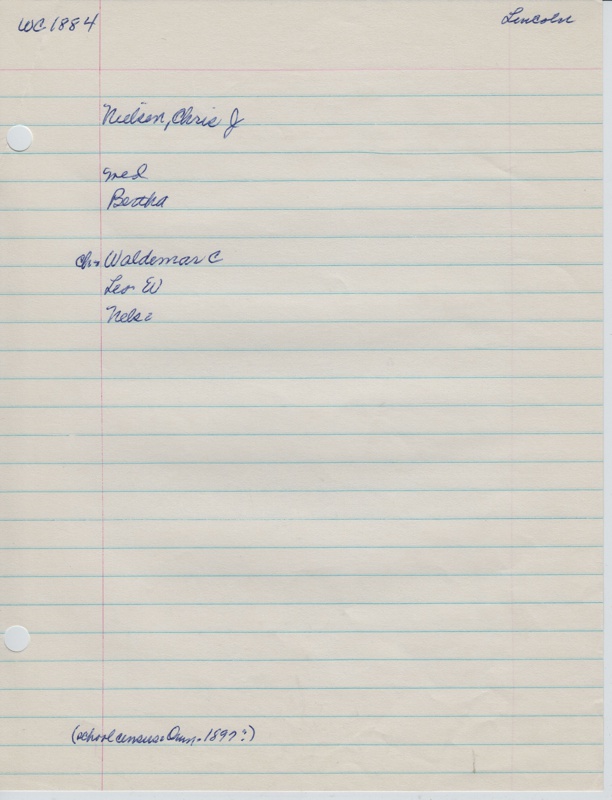 WC-1884
Lincoln
Nielsen, Chris J
med
Bertha
ch- Waldemar C
Leo W
Nels
(school census- 1897?)